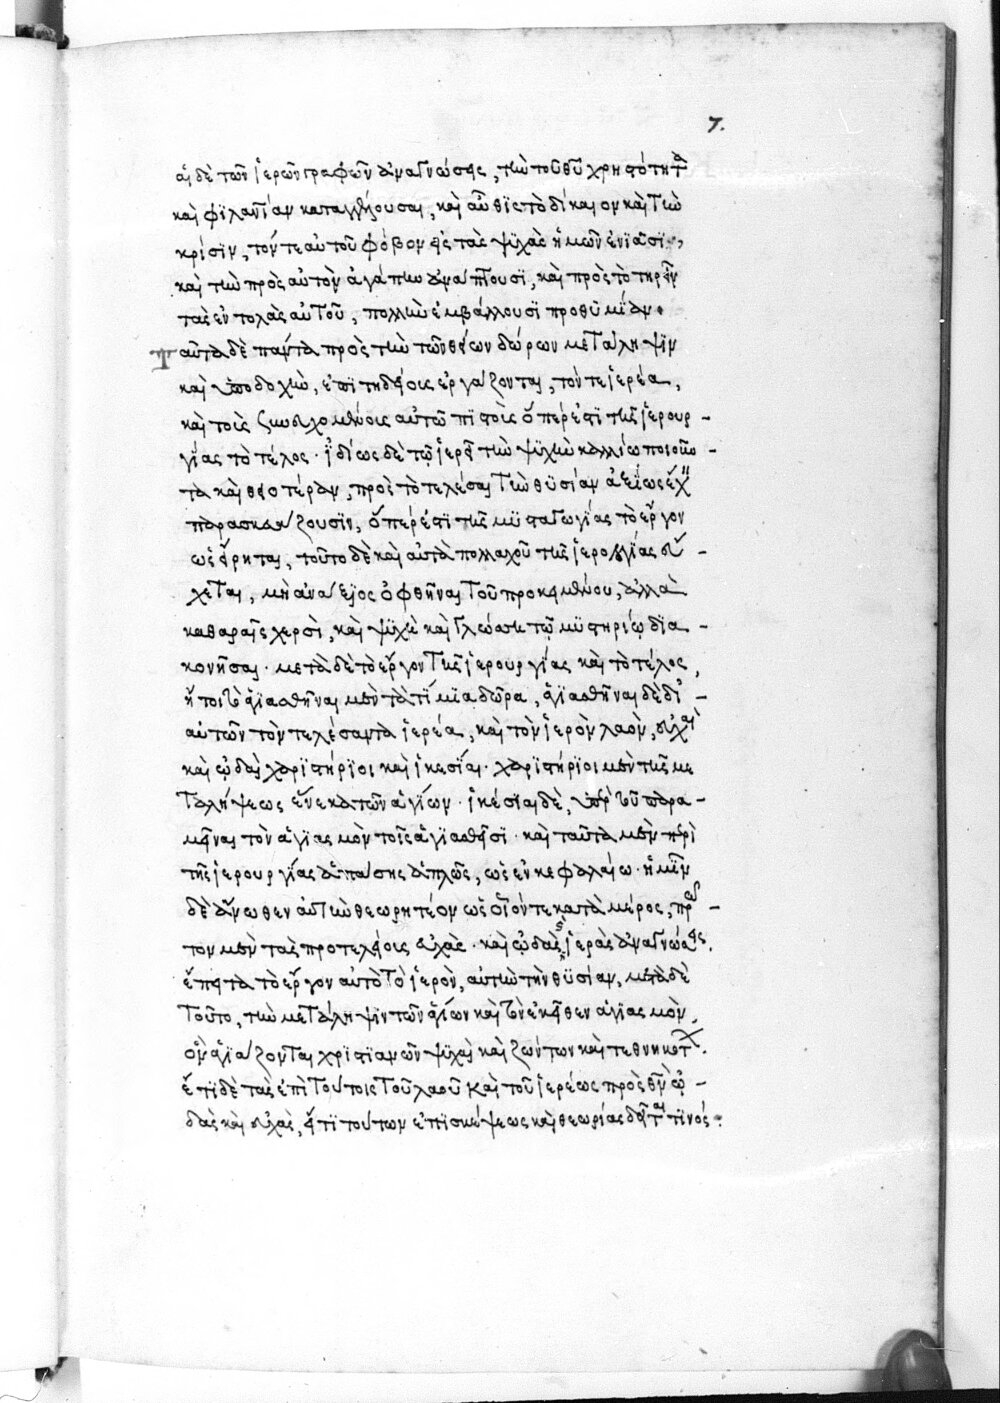 7.
αἱ δὲ τῶν ἱερῶν γραφῶν ἀναγνώσεις, τὴν τοῦ θῦ χρηστότητα
καὶ φιλανθρωπίαν καταγγέλλουσαι, καὶ αὖθις τὸ δίκαιον καὶ τὴν
κρίσιν, τόν τε αὐτοῦ φόβον εἰς τὰς ψυχὰς ἡμῶν ἐνιᾶσι,
καὶ τὴν πρὸς αὐτὸν ἀγάπην ἀνάπτουσι, καὶ πρὸς τὸ τηρεῖν
τὰς ἐντολὰς αὐτοῦ, πολλὴν ἐμβάλλουσι προθυμίαν.
Ταῦτα δὲ πάντα πρὸς τὴν τῶν θείων δώρων μετάληψιν
καὶ ὑποδοχὴν, ἐπιτηδείους ἐργάζονται, τόν τε ἱερέα,
καὶ τοὺς συνερχομένους αὐτῷ πιστούς ὅπερ ἐστὶ τῆς ἱερουρ-
γίας τὸ τέλος. ἰδίως δὲ τῷ ἱερεῖ τὴν ψυχὴν καλλίω ποιοῦν-
τα καὶ θειοτέραν, πρὸς τὸ τελέσαι τὴν θυσίαν ἀξίως ἔχειν
παρασκευάζουσιν, ὅπερ ἐστὶ τῆς μυσταγωγίας τὸ ἔργον
ὡς εἴρηται, τοῦτο δὲ καὶ αὐτὰ πολλαχοῦ τῆς ἱερολογίας εὔ-
χεται, μὴ ἀνάξιος ὀφθῆναι τοῦ προκειμένου, ἀλλὰ
καθαραῖς χερσὶ, καὶ ψυχῇ καὶ γλώσσῃ τῷ μυστηρίῳ δια-
κονῆσαι. μετὰ δὲ τὸ ἔργον τῆς ἱερουργίας καὶ τὸ τέλος,
ἤτοι τὸ ἁγιασθῆναι μὲν τὰ τίμια δῶρα, ἁγιασθῆναι δὲ δι'-
αὐτῶν τὸν τελέσαντα ἱερέα, καὶ τὸν ἱερὸν λαὸν, εὐχαὶ
καὶ ᾠδαὶ χαριστήριοι καὶ ἱκεσίαι. χαριστήριοι μὲν τῆς με
ταλήψεως ἕνεκα τῶν ἁγίων. ἱκέσιαι δὲ, ὑπὲρ τοῦ παρα-
μεῖναι τὸν ἁγιασμὸν τοῖς ἁγιασθεῖσι. καὶ ταῦτα μὲν περὶ
τῆς ἱερουργίας ἁπάσης ἁπλῶς, ὡς ἐν κεφαλαίῳ. ἡμῖν
δὲ ἄνωθεν αὐτὴν θεωρητέον ὡς οἷόν τε κατὰ μέρος, πρῶ-
τον μὲν τὰς προτελείους εὐχὰς. καὶ ᾠδὰς ἱερὰς ἀναγνώσεις.
ἔπειτα τὸ ἔργον αὐτὸ τὸ ἱερὸν, αὐτὴν τὴν θυσίαν, μετὰ δὲ
τοῦτο, τὴν μετάληψιν τῶν ἁγίων καὶ τὸν ἐκεῖθεν ἁγιασμὸν,
ὃν ἁγιάζονται χριστιανῶν ψυχαὶ καὶ ζώντων καὶ τεθνηκότων.
ἔτι δὲ τὰς ἐπὶ τούτοις τοῦ λαοῦ καὶ τοῦ ἱερέως πρὸς θν̀ ᾠ-
δὰς καὶ εὐχὰς, εἴ τι τούτων ἐπισκέψεως καὶ θεωρίας δεῖταί τινός.